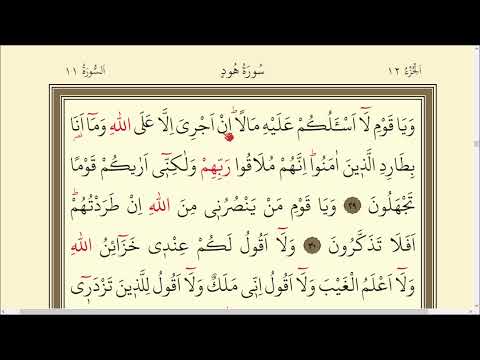 اَلْجُزْءُ ١٢ سُورَةُ هُودٍ اَلسُّورَةُ ١١
وَيَا قَوْمِ لَٓا اَسْـَٔلُكُمْ عَلَيْهِ مَالًاۜ اِنْ اَجْرِىَ اِلَّا عَلَى اللّٰهِ وَمَٓا اَنَا۬
بِطَارِدِ الَّذ۪ينَ اٰمَنُواۜ اِنَّهُمْ مُلَاقُوا رَبِّهِمْ وَلٰكِنّ۪ٓى اَرٰيكُمْ قَوْمًا
تَجْهَلُونَ ﴿٢٩﴾ وَيَا قَوْمِ مَنْ يَنْصُرُن۪ى مِنَ اللّٰهِ اِنْ طَرَدْتُهُمْۜ
اَفَلَا تَذَكَّرُونَ ﴿٣٠﴾ وَلَٓا اَقُولُ لَكُمْ عِنْد۪ى خَزَٓائِنُ اللّٰهِ
وَلَٓا اَعْلَمُ الْغَيْبَ وَلَٓا اَقُولُ اِنّ۪ى مَلَكٌ وَلَٓا اَقُولُ لِلَّذ۪ينَ تَزْدَر۪ٓى